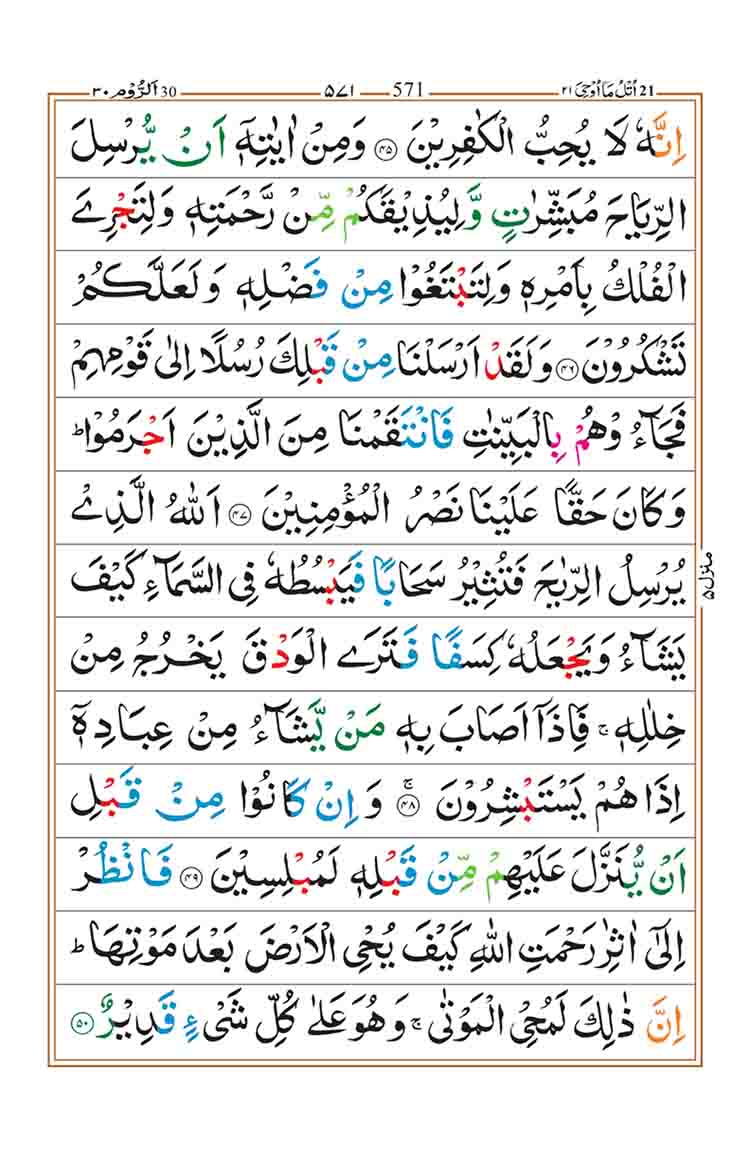 اُتْلُ مَاۤ اُوْحِیَ ٢١ 21 571 ۵۷۱ اَلرُّوْم ٣٠ 30
اِنَّهٗ لَا یُحِبُّ الْكٰفِرِیْنَ ﴿۴۵﴾ وَمِنْ اٰیٰتِهٖۤ اَنْ یُّرْسِلَ
الرِّیَاحَ مُبَشِّرٰتٍ وَّلِیُذِیْقَكُمْ مِّنْ رَّحْمَتِهٖ وَلِتَجْرِیَ
الْفُلْكُ بِاَمْرِهٖ وَلِتَبْتَغُوْا مِنْ فَضْلِهٖ وَلَعَلَّكُمْ
تَشْكُرُوْنَ ﴿۴۶﴾ وَلَقَدْ اَرْسَلْنَا مِنْ قَبْلِكَ رُسُلًا اِلٰی قَوْمِهِمْ
فَجَآءُوْهُمْ بِالْبَیِّنٰتِ فَانْتَقَمْنَا مِنَ الَّذِیْنَ اَجْرَمُوْا ؕ
وَكَانَ حَقًّا عَلَیْنَا نَصْرُ الْمُؤْمِنِیْنَ ﴿۴۷﴾ اَللّٰهُ الَّذِیْ
یُرْسِلُ الرِّیٰحَ فَتُثِیْرُ سَحَابًا فَیَبْسُطُهٗ فِی السَّمَآءِ كَیْفَ
یَشَآءُ وَیَجْعَلُهٗ كِسَفًا فَتَرَی الْوَدْقَ یَخْرُجُ مِنْ
خِلٰلِهٖ ۚ فَاِذَاۤ اَصَابَ بِهٖ مَنْ یَّشَآءُ مِنْ عِبَادِهٖۤ
اِذَا هُمْ یَسْتَبْشِرُوْنَ ۚ﴿۴۸﴾ وَاِنْ كَانُوْا مِنْ قَبْلِ
اَنْ یُّنَزَّلَ عَلَیْهِمْ مِّنْ قَبْلِهٖ لَمُبْلِسِیْنَ ﴿۴۹﴾ فَانْظُرْ
اِلٰۤی اٰثٰرِ رَحْمَتِ اللّٰهِ كَیْفَ یُحْیِ الْاَرْضَ بَعْدَ مَوْتِهَا ؕ
اِنَّ ذٰلِكَ لَمُحْیِ الْمَوْتٰی ۚ وَهُوَ عَلٰی كُلِّ شَیْءٍ قَدِیْرٌ ﴿۵۰﴾
منزل ۵